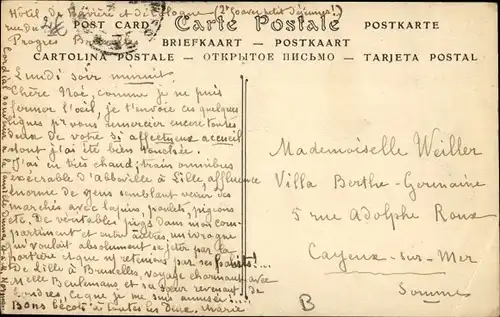 Hôtel de Bavière et de Cologne (2f 50 avec petit déjeuner!)
rue du
Progrès
POST CARD
Carte Postale
POSTKARTE
BRIEFKAART — POSTKAART
CARTOLINA POSTALE — ОТКРЫТОЕ ПИСЬМО — TARJETA POSTAL
Lundi soir minuit
Chère Noé, comme je ne puis
fermer l'œil, je t'envoie ces quelques
lignes pr vous remercier encore toutes
deux de votre si affectueux accueil
dont j'ai été bien touchée.
J'ai eu très chaud; train omnibus
exécrable d'Abbeville à Lille, affluence
énorme de gens semblant venir des
marchés avec lapins, poulets, pigeons
etc. De véritables pigs dans mon com-
partiment et entre autres, un ivrogne
qui voulait absolument se jeter par la
portière et que j'y retenais par ses habits!...
De Lille à Bruxelles, voyage charmant avec
Melle Beulemans et sa sœur revenant de
Londres. Ce que je me suis amusée!!!!
Bons bécots à toutes les deux. Marie
Mademoiselle Weiller
Villa Berthe-Germaine
5 rue Adolphe Roux
Cayeux-sur-Mer
Somme
B